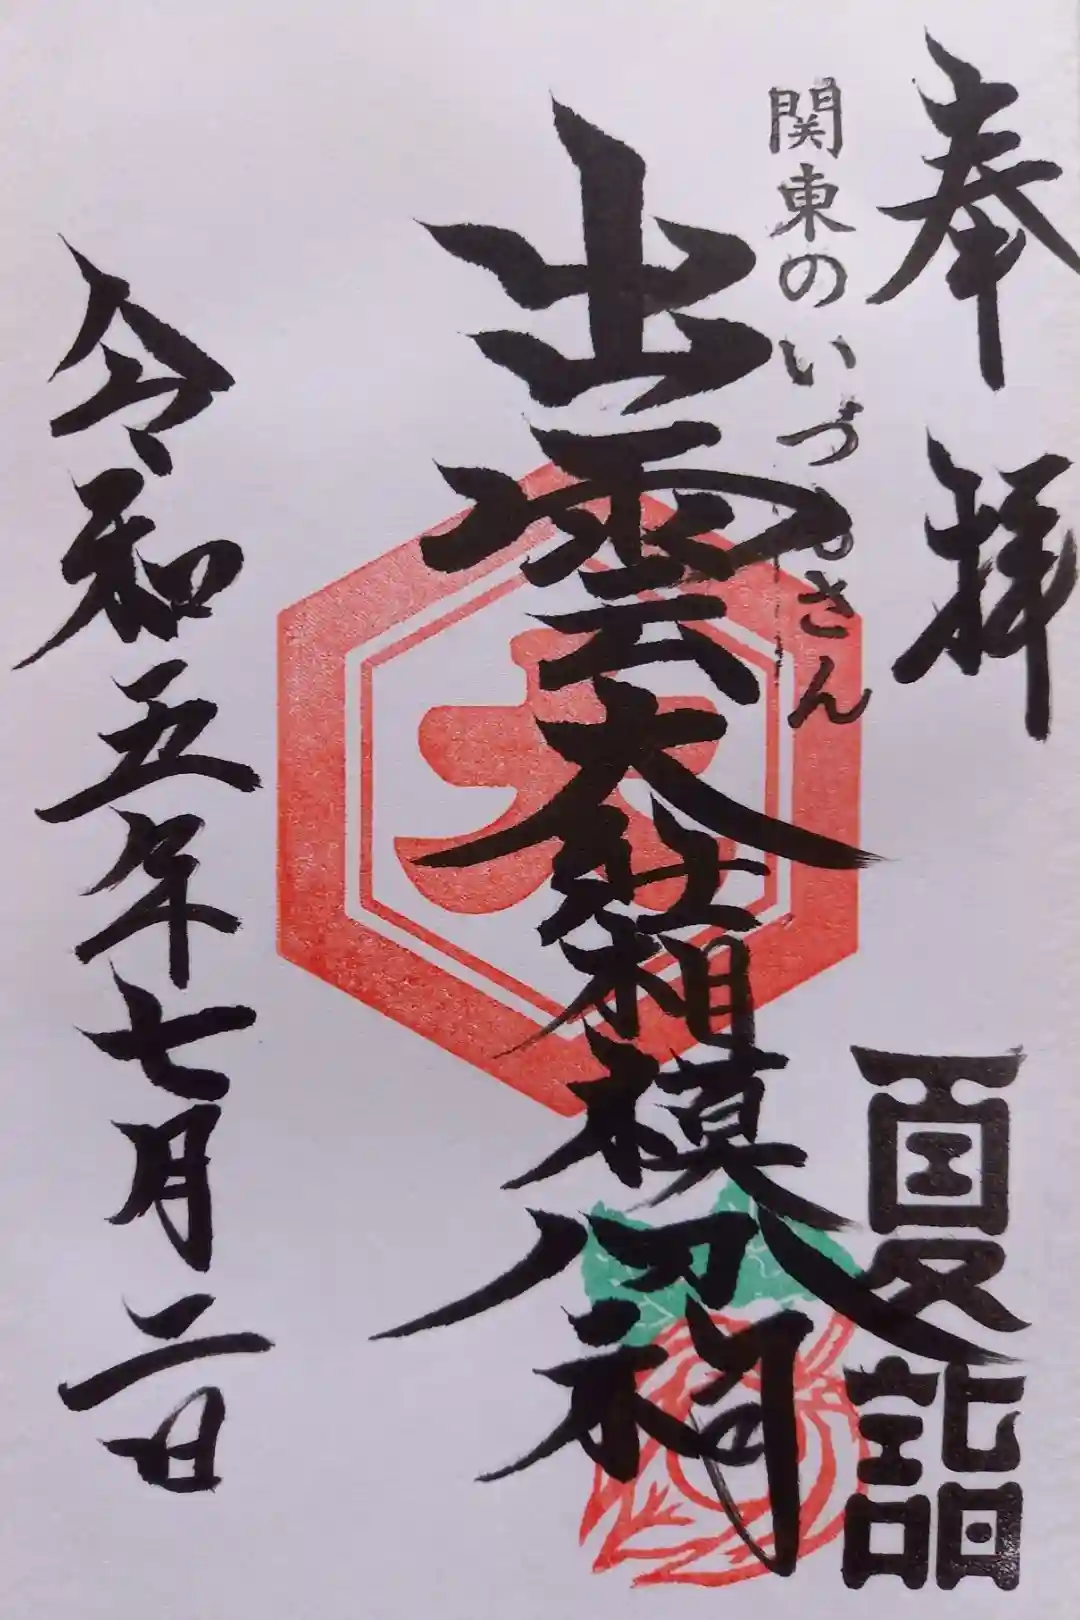 奉拝
関東のいづもさん
出雲大社相模分祠
大
夏詣
令和五年七月二日